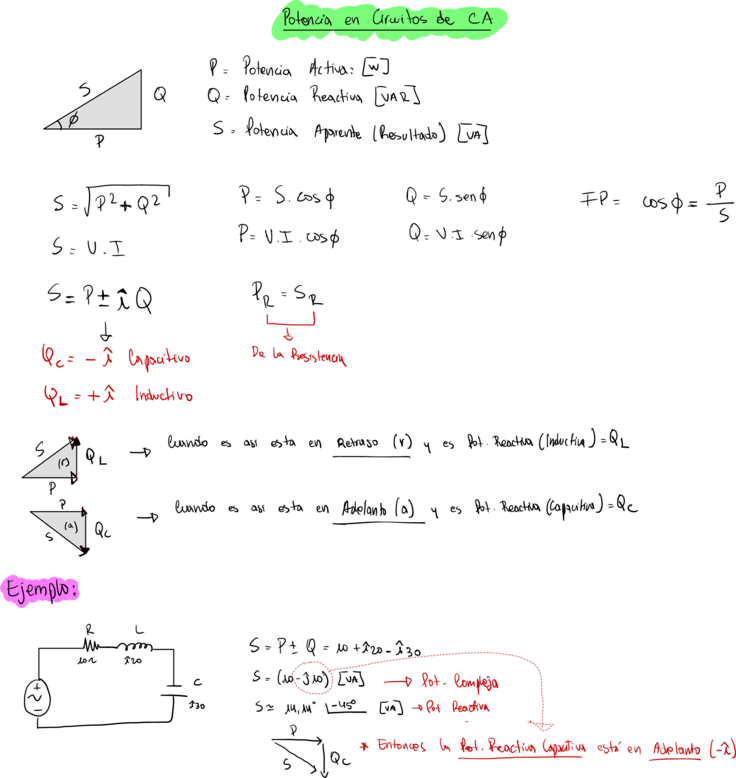 Potencia en Circuitos de CA
P = Potencia Activa: [W]
Q = Potencia Reactiva [VAR]
S = Potencia Aparente (Resultado) [VA]
S
Q
φ
P
S = √P² + Q²
P = S. cosφ
Q = S. senφ
FP = cosφ = P/S
S = V. I
P = V. I. cosφ
Q = V. I. senφ
S = P ± î Q
P_R = S_R
De la Resistencia
Q_C = - î Capacitivo
Q_L = + î Inductivo
S
(r)
Q_L
P
→ Cuando es asi esta en Retraso (r) y es Pot. Reactiva (Inductiva) = Q_L
P
(a)
S
Q_C
→ Cuando es asi esta en Adelanto (a) y es Pot. Reactiva (Capacitiva) = Q_C
Ejemplo:
R
L
10Ω
î20
C
î30
S = P ± Q = 10 + î20 - î30
S = (10 - J10) [VA] → Pot. Compleja
S ≃ 14,14 ∠-45° [VA] → Pot. Reactiva
P
S
Q_C
* Entonces la Pot. Reactiva Capacitiva está en Adelanto (-î)